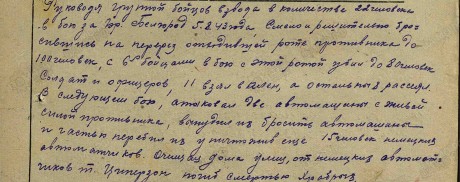 Руководя группой бойцов взвода в количестве 20 человек
в бою за гор. Белгород 5.8.43 года, смело и решительно бро-
сившись на перерез отходившей роте противника до
100 человек, с 6ю бойцами в бою с этой ротой убил до 80 человек
солдат и офицеров, 11 взял в плен, а остальных рассеял.
В следующем бою, атаковал две автомашины с живой
силой противника, вынудил их бросить автомашины
и частью перебил их уничтожив еще 15 человек немецких
автоматчиков. Очищая дома улиц, от немецких автомат-
чиков т. погиб смертью храбрых.